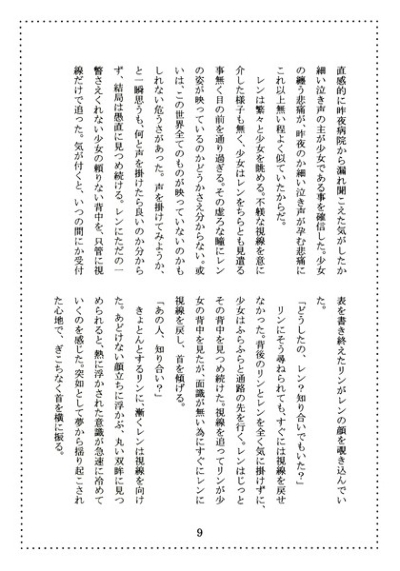 直感的に昨夜病院から漏れ聞こえた気がしたか
細い泣き声の主が少女である事を確信した。少女
の纏う悲痛が、昨夜のか細い泣き声が孕む悲痛に
これ以上無い程よく似ていたからだ。
レンは繁々と少女を眺める。不躾な視線を意に
介した様子も無く、少女はレンをちらとも見遣る
事無く目の前を通り過ぎる。その虚ろな瞳にレン
の姿が映っているのかどうかさえ分からない。或
いは、この世界全てのものが映っていないのかも
しれない危うさがあった。声を掛けてみようか、
と一瞬思うも、何と声を掛けたら良いのか分から
ず、結局は愚直に見つめ続ける。レンにただの一
瞥さえくれない少女の頼りない背中を、只管に視
線だけで追った。気が付くと、いつの間にか受付
表を書き終えたリンがレンの顔を覗き込んでい
た。
「どうしたの、レン？知り合いでもいた？」
リンにそう尋ねられても、すぐには視線を戻せ
なかった。背後のリンとレンを全く気に掛けずに、
少女はふらふらと通路の先を行く。レンはじっと
その背中を見つめ続けた。視線を追ってリンが少
女の背中を見たが、面識が無い為にすぐにレンに
視線を戻し、首を傾げる。
「あの人、知り合い？」
きょとんとするリンに、漸くレンは視線を向け
た。あどけない顔立ちに浮かぶ、丸い双眸に見つ
められると、熱に浮かされた意識が急速に冷めて
いくのを感じた。突如として夢から揺り起こされ
た心地で、ぎこちなく首を横に振る。
9